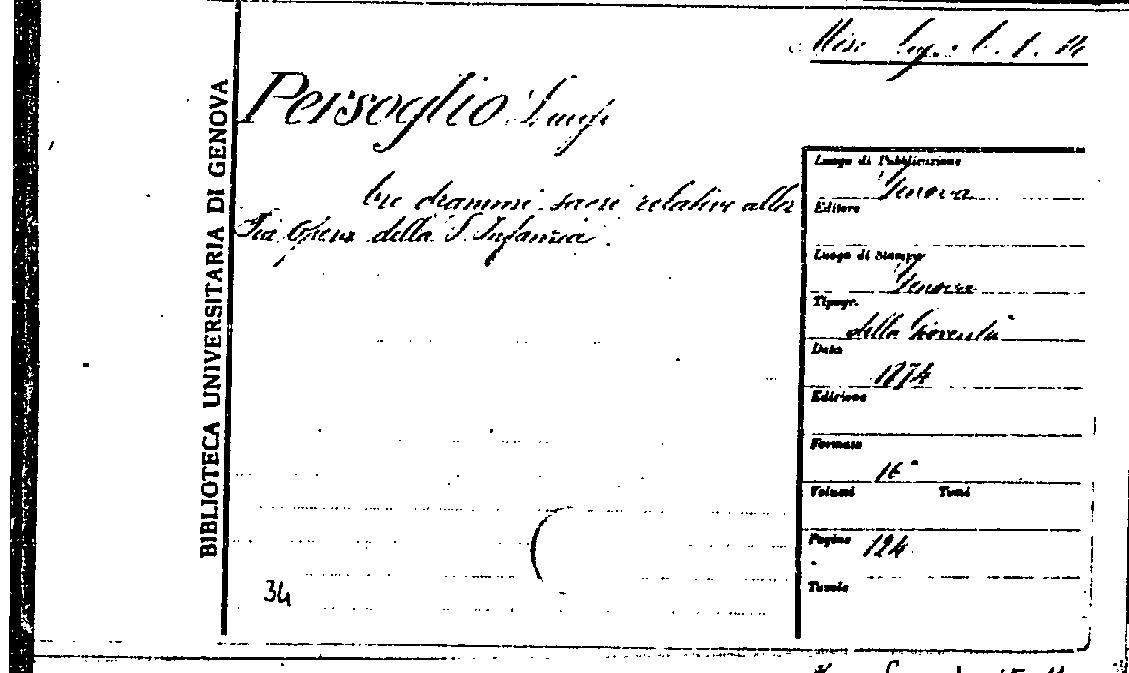 Misc. Leg. b. 1. 14
Persoglio Luigi
Tre drammi sacri relativi alla
Pia Opera della S. Infanzia.
BIBLIOTECA UNIVERSITARIA DI GENOVA
Luogo di Pubblicazione
Genova
Editore
Luogo di Stampa
Genova
Tipogr.
della Gioventù
Data
1874
Edizione
Formato
16°
Volumi Tomi
Pagine 124
Tavole
34